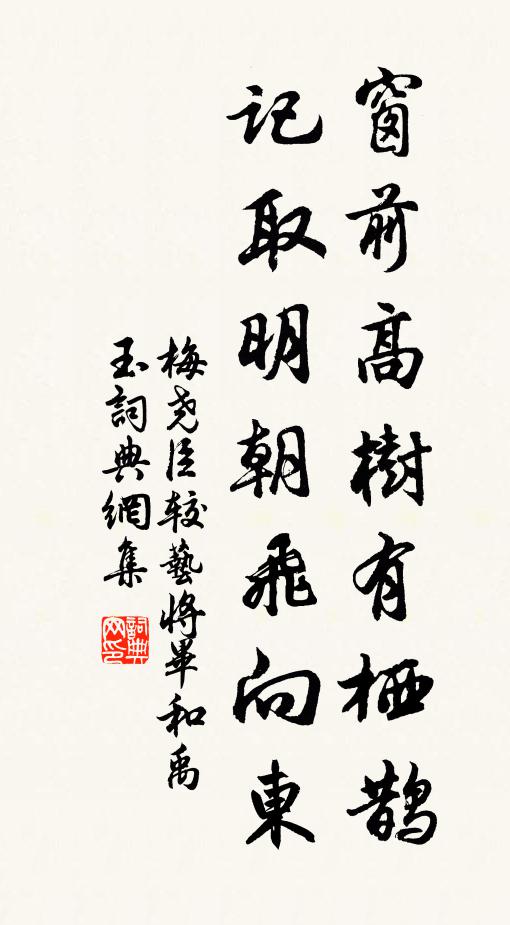 窗前高樹有栖鵲
記取明朝飛向東
梅尧臣較藝將畢和禹
玉詞典網集
詞典
网印